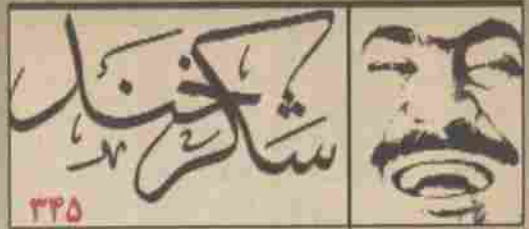 شکرخند
۳۴۵